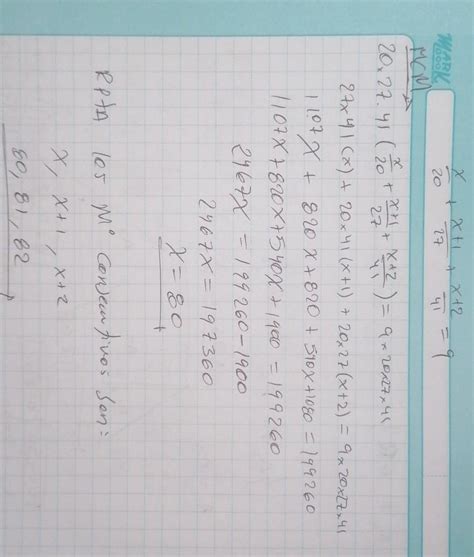 MARK
x/20 + x+1/27 + x+2/41 = 9
MCM
20x27.41 (x/20 + x+1/27 + x+2/41) = 9x20x27x41
27x41(x) + 20x41(x+1) + 20x27(x+2) = 9x20x27x41
1107x + 820x + 820 + 540x + 1080 = 199260
1107x + 820x + 540x + 1900 = 199260
2467x = 199260 - 1900
2467x = 197360
x = 80
Rpta los Nº consecutivos son:
x, x+1, x+2
80, 81, 82